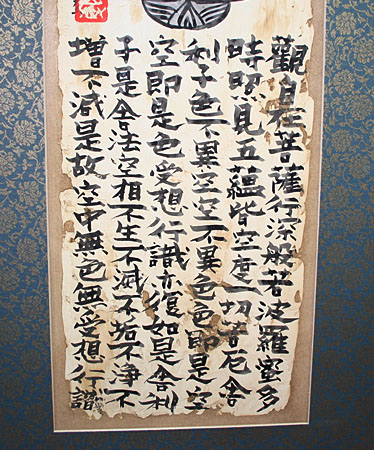 觀自在菩薩行深般若波羅蜜多
時照見五蘊皆空度一切苦厄舍
利子色不異空空不異色色即是空
空即是色受想行識亦復如是舍利
子是舍法空相不生不滅不垢不淨不
增不減是故空中無色無受想行識